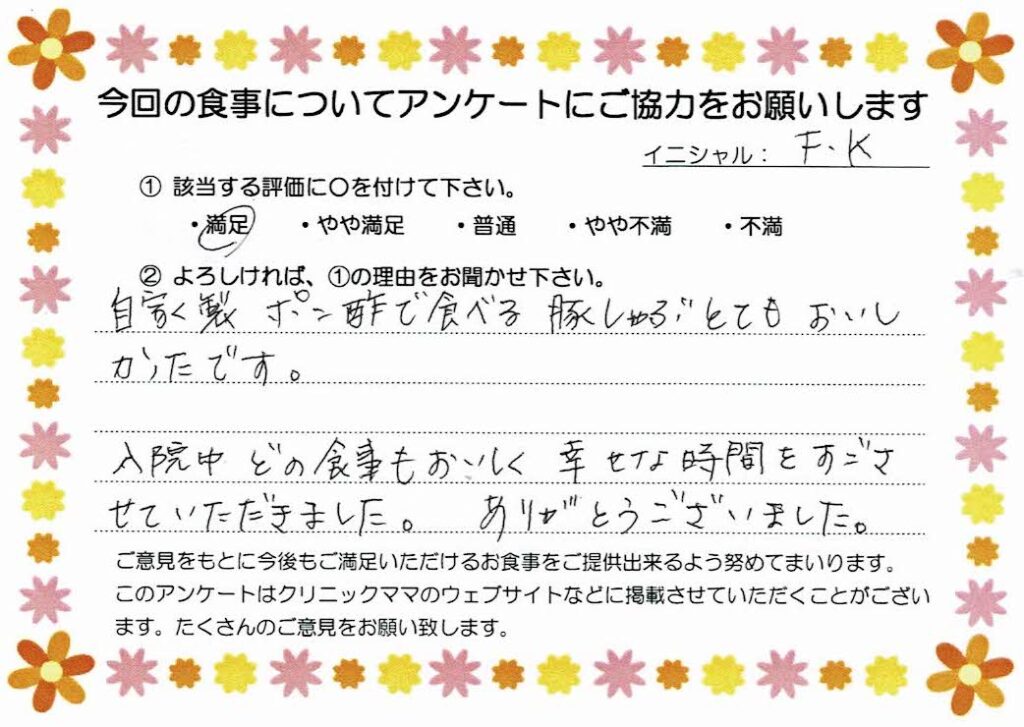 今回の食事についてアンケートにご協力をお願いします
イニシャル： F.K
① 該当する評価に〇を付けて下さい。
・満足 ・やや満足 ・普通 ・やや不満 ・不満
② よろしければ、①の理由をお聞かせ下さい。
自家く製 ポン酢で食べる 豚しゃぶ とても おいし
かったです。
入院中 どの食事もおいしく 幸せな時間をすごさ
せていただきました。 ありがとうございました。
ご意見をもとに今後もご満足いただけるお食事をご提供出来るよう努めてまいります。
このアンケートはクリニックママのウェブサイトなどに掲載させていただくことがござい
ます。たくさんのご意見をお願い致します。